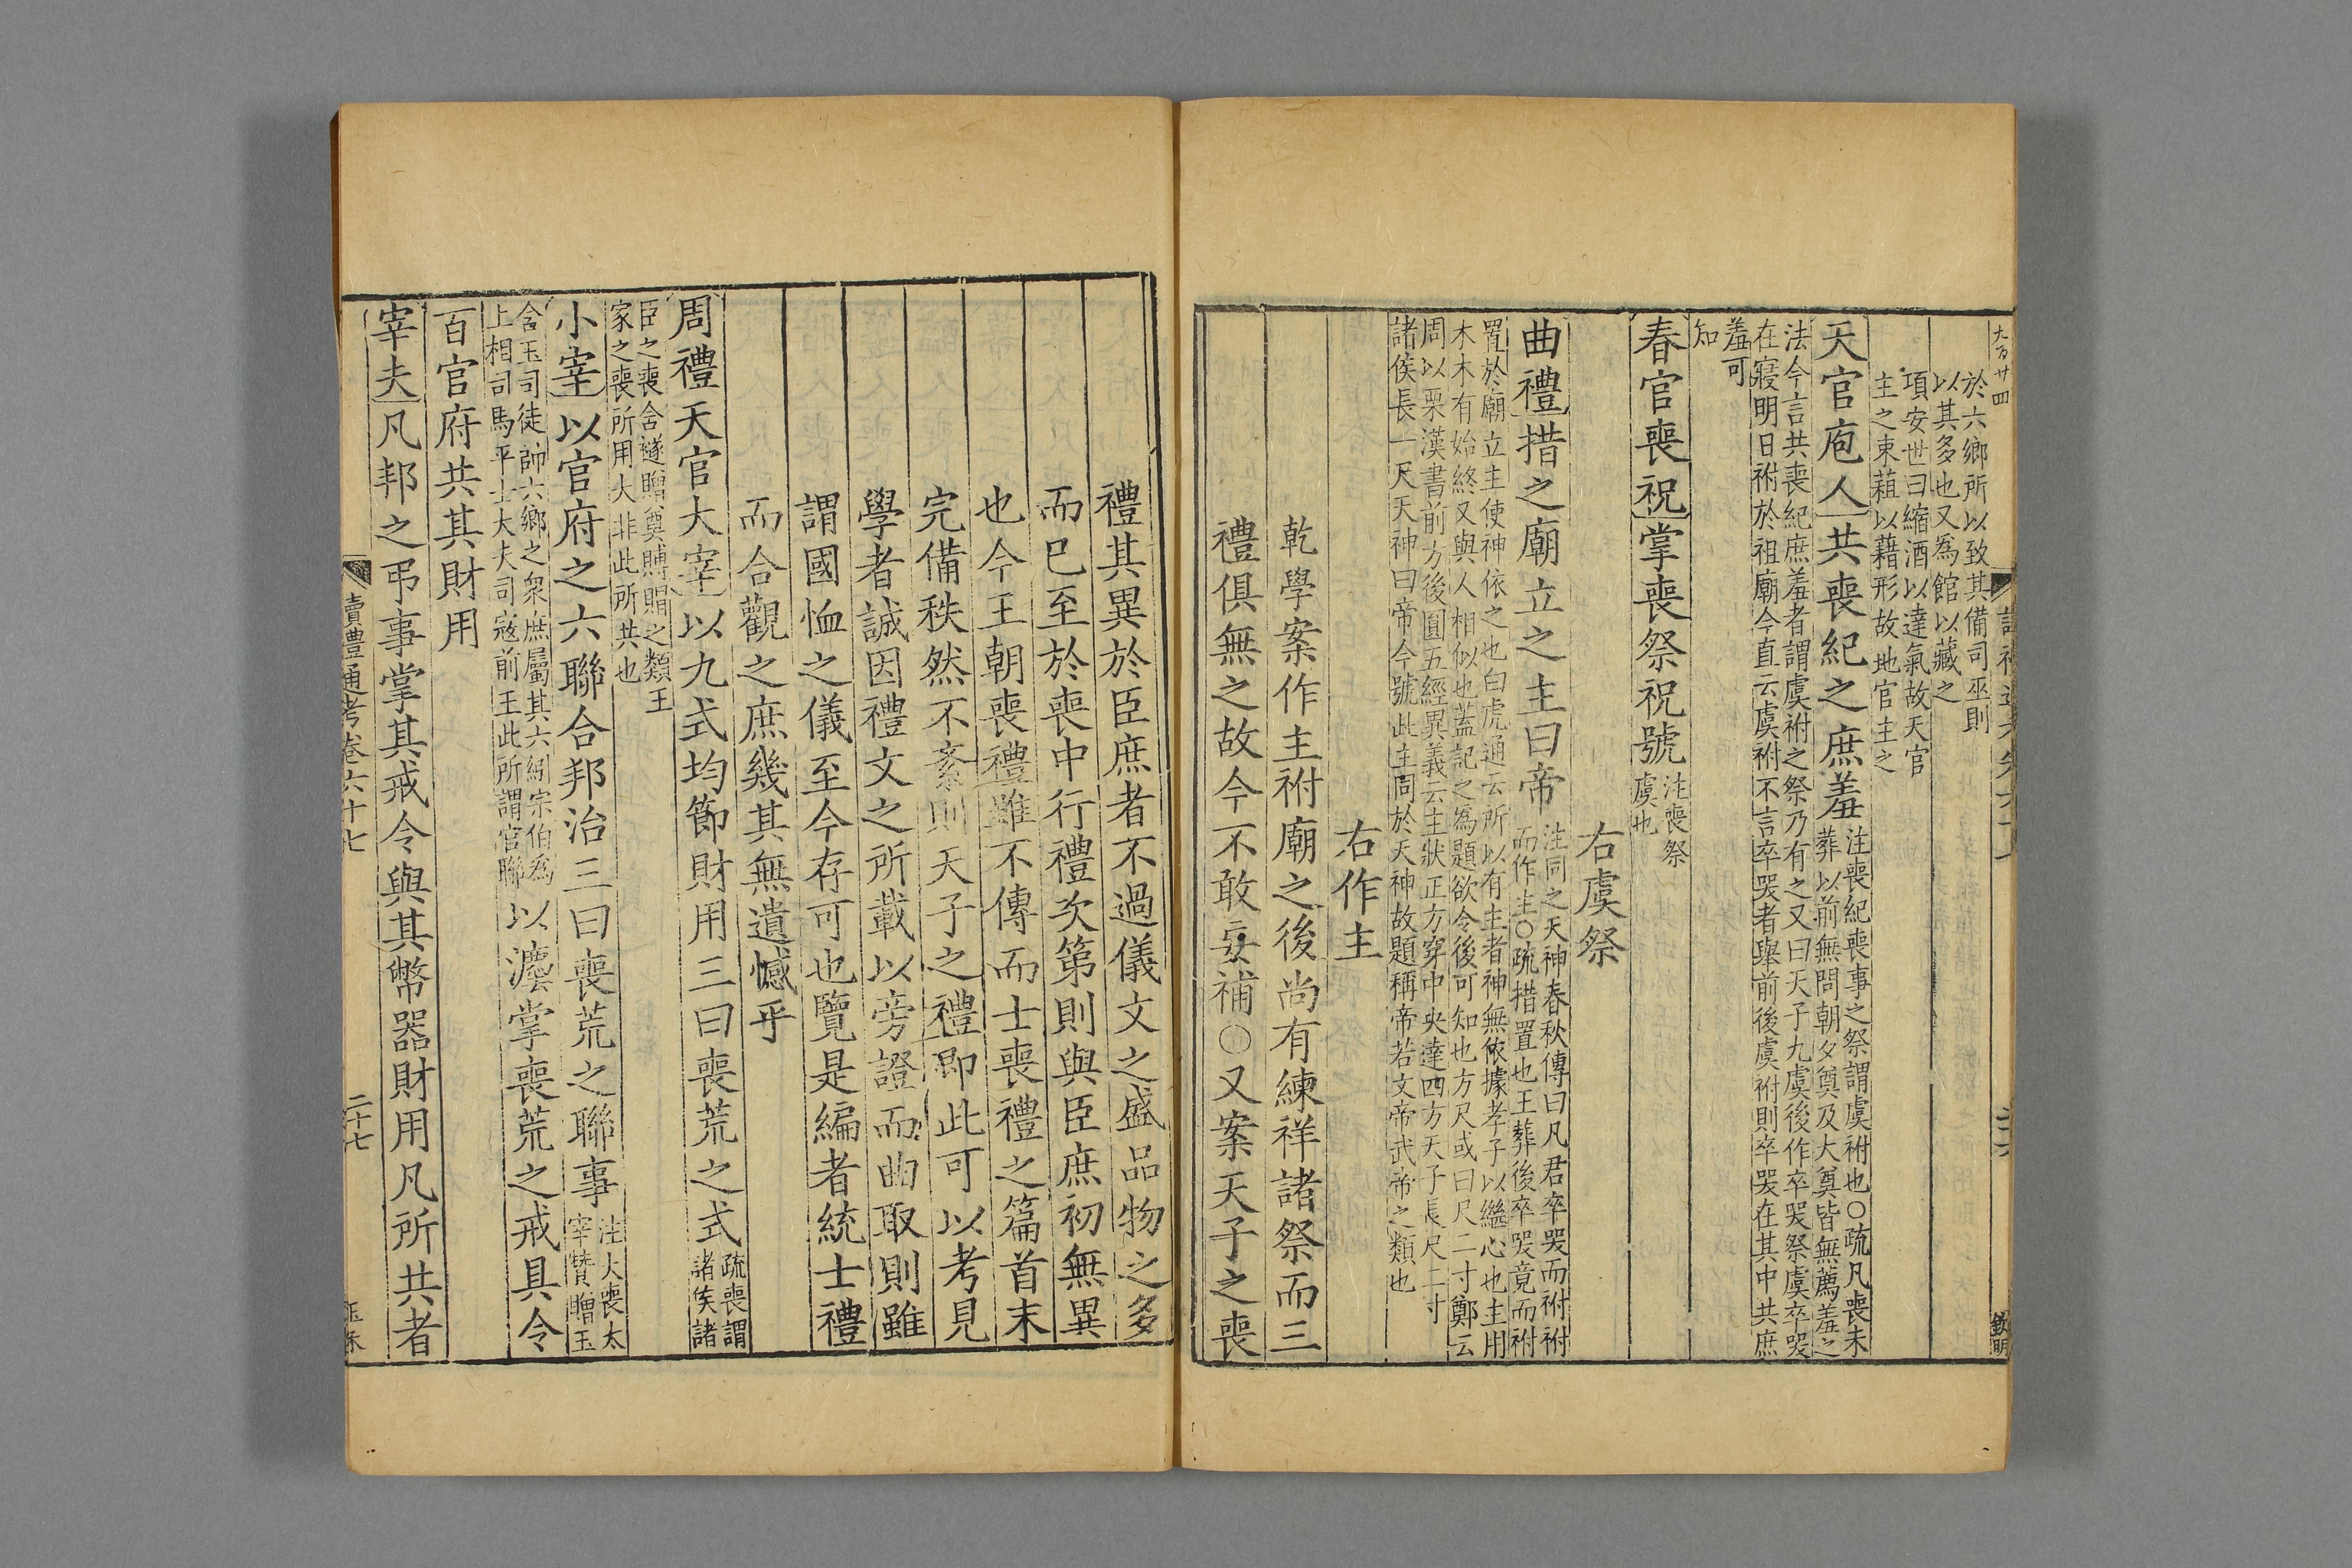 大百廿四
於六鄉所以致其備司巫則
以其多也又為館以藏之
項安世曰縮酒以達氣故天官
主之束蒩以藉形故地官主之
天官庖人共喪紀之庶羞
注喪紀喪事之祭謂虞祔也○疏凡喪未
葬以前無問朝夕奠及大奠皆無薦羞之
法今言共喪紀庶羞者謂虞祔之祭乃有之又曰天子九虞後作卒哭祭虞卒哭
在寢明日祔於祖廟今直云虞祔不言卒哭者舉前後虞祔則卒哭在其中共庶
羞可
知
春官喪祝掌喪祭祝號
注喪祭
虞也
右虞祭
曲禮措之廟立之主曰帝
注同之天神春秋傳曰凡君卒哭而祔祔
而作主○疏措置也王葬後卒哭竟而祔
置於廟立主使神依之也白虎通云所以有主者神無依據孝子以繼心也主用
木木有始終又與人相似也蓋記之為題欲令後可知也方尺或曰尺二寸鄭云
周以栗漢書前方後圓五經異義云主狀正方穿中央達四方天子長尺二寸
諸侯長一尺天神曰帝今號此主同於天神故題稱帝若文帝武帝之類也
右作主
乾學案作主祔廟之後尚有練祥諸祭而三
禮俱無之故今不敢妄補○又案天子之喪
禮其異於臣庶者不過儀文之盛品物之多
而已至於喪中行禮次第則與臣庶初無異
也今王朝喪禮雖不傳而士喪禮之篇首末
完備秩然不紊則天子之禮即此可以考見
學者誠因禮文之所載以旁證而曲取則雖
謂國恤之儀至今存可也覽是編者統士禮
而合觀之庶幾其無遺憾乎
周禮天官大宰以九式均節財用三曰喪荒之式
疏喪謂
諸侯諸
臣之喪含襚贈奠賻賵之類王
家之喪所用大非此所共也
小宰以官府之六聯合邦治三曰喪荒之聯事
注大喪太
宰贊贈玉
含玉司徒帥六鄉之衆庶屬其六紼宗伯為
上相司馬平士大夫司寇前王此所謂官聯
以灋掌喪荒之戒具令
百官府共其財用
宰夫凡邦之弔事掌其戒令與其幣器財用凡所共者
讀禮通考卷六十七
二十七